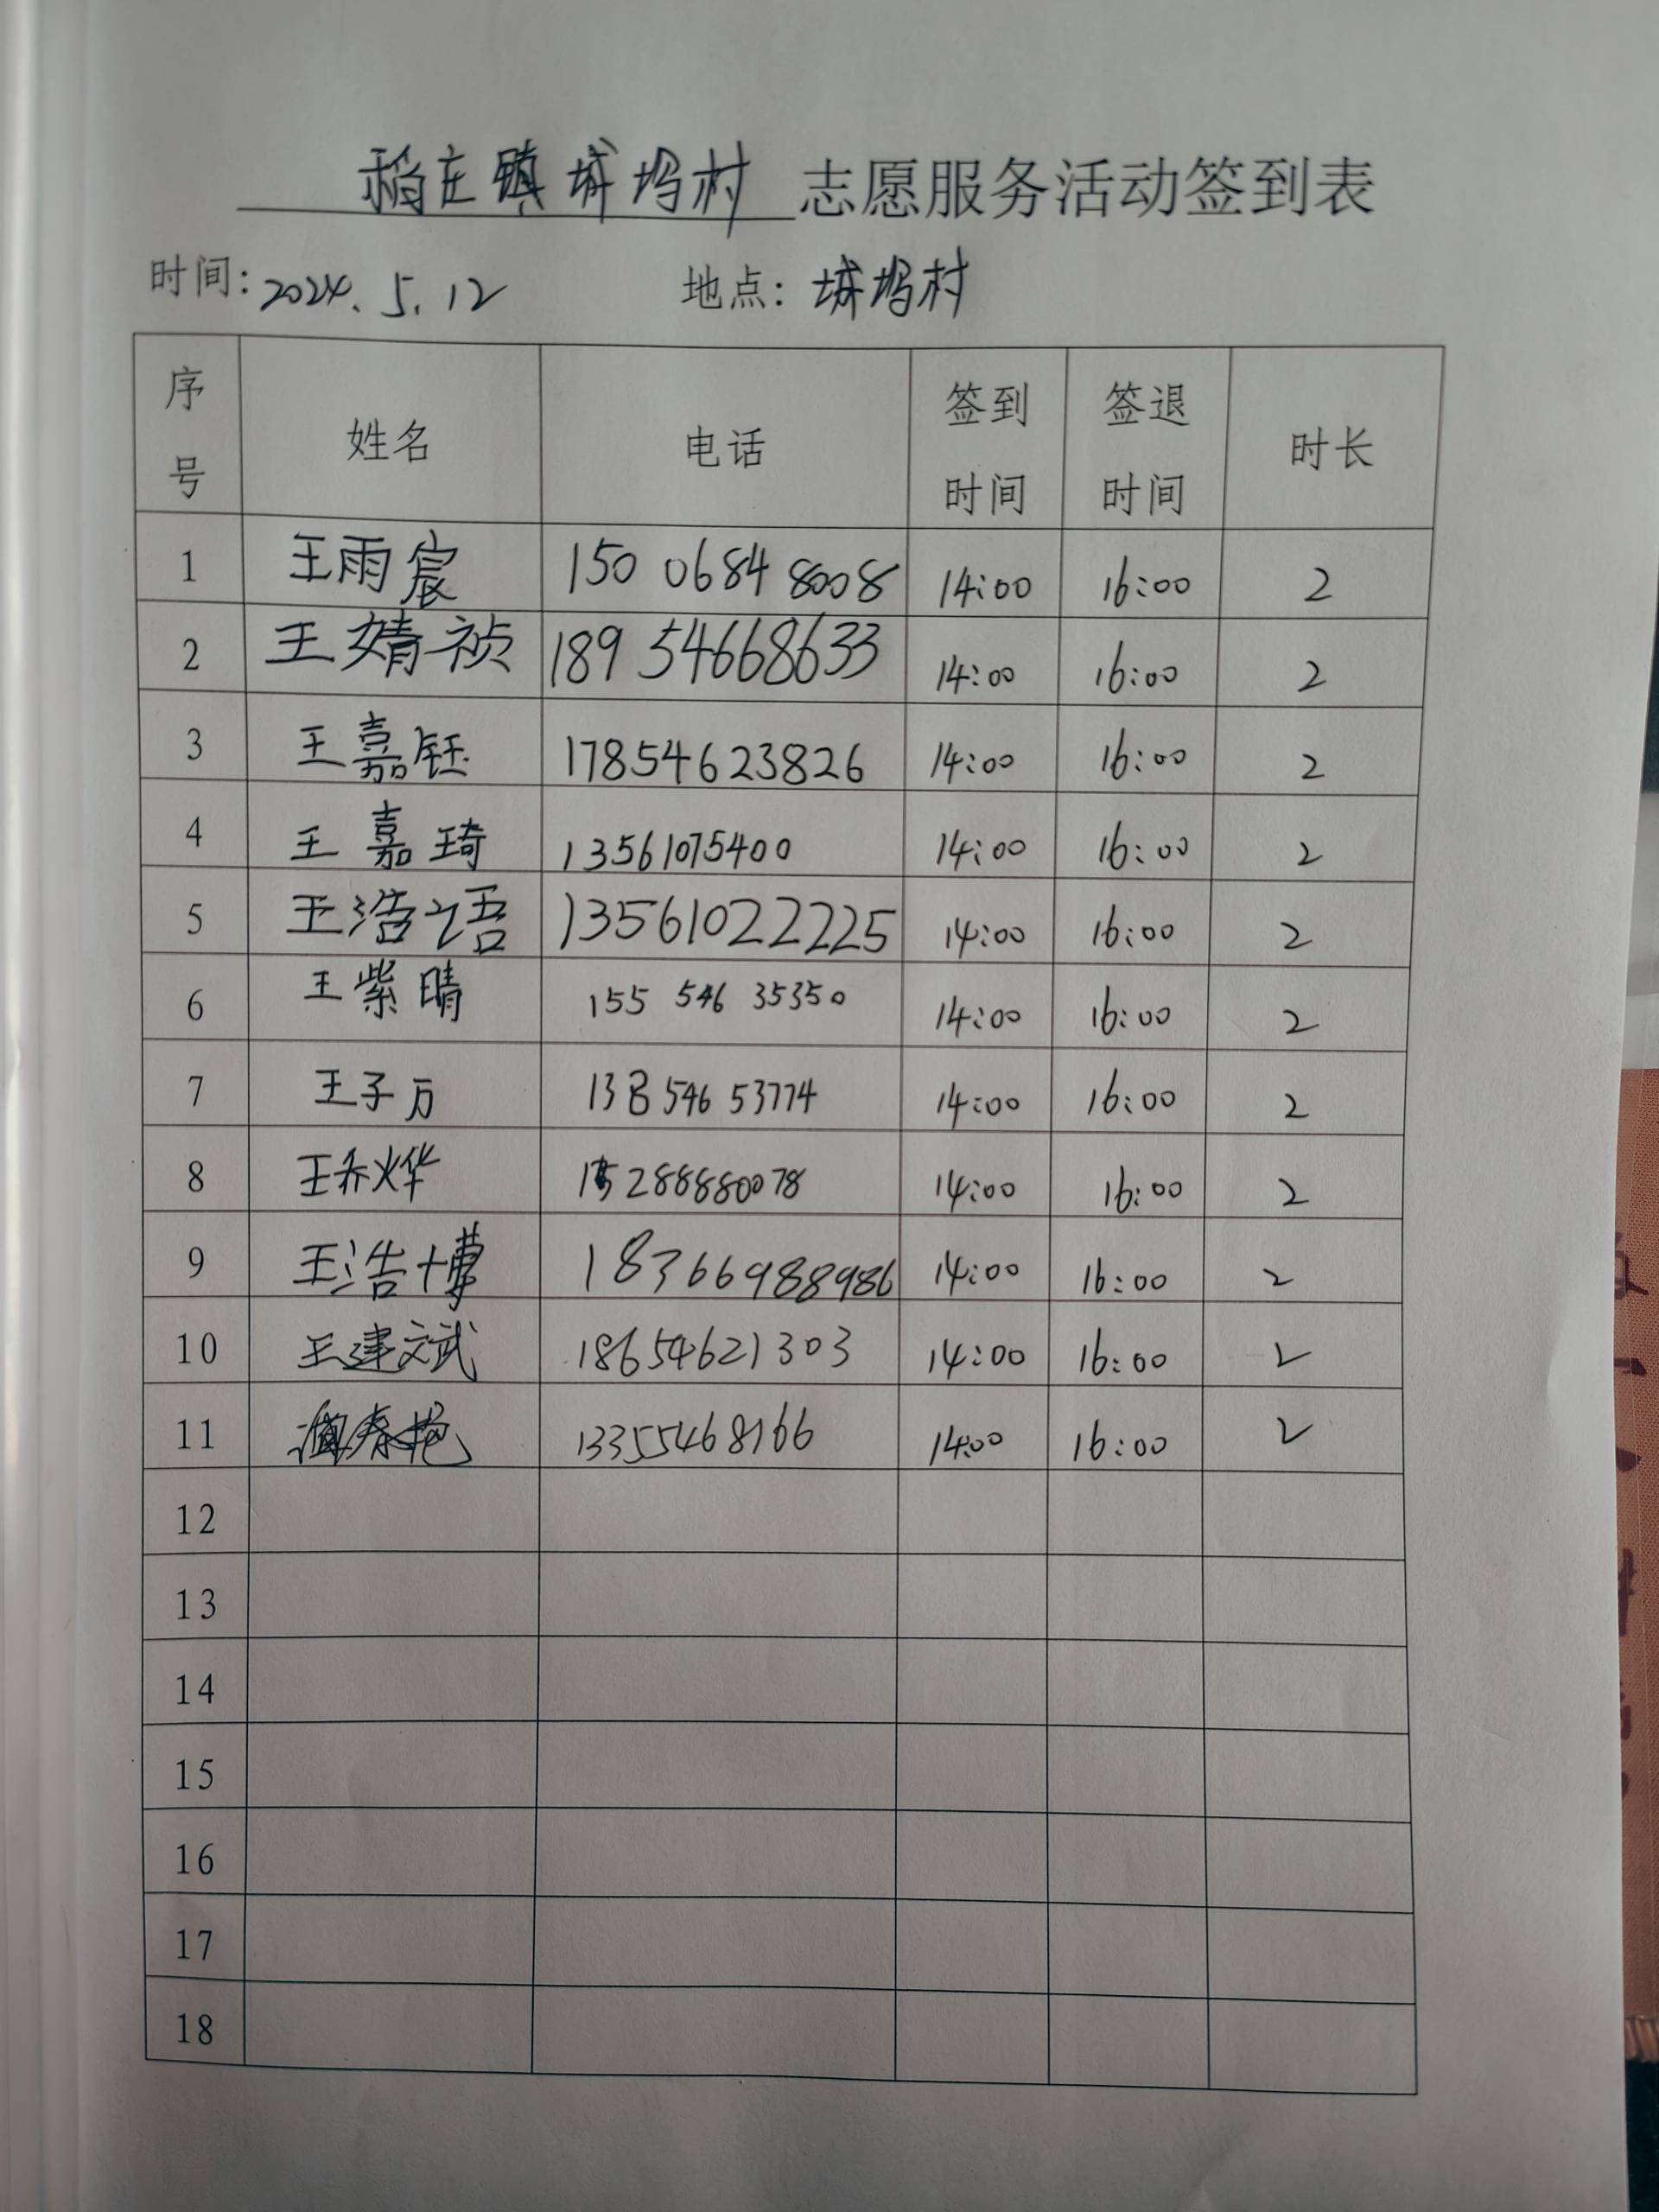 稻庄镇城坞村 志愿服务活动签到表
时间:2024.5.12 地点:城坞村
序号 姓名 电话 签到时间 签退时间 时长
1 王雨宸 150 0684 8008 14:00 16:00 2
2 王婧祯 189 54668633 14:00 16:00 2
3 王嘉钰 17854623826 14:00 16:00 2
4 王嘉琦 13561075400 14:00 16:00 2
5 王浩语 13561022225 14:00 16:00 2
6 王紫晴 155 546 35350 14:00 16:00 2
7 王子万 138 546 53774 14:00 16:00 2
8 王乔烨 15288880078 14:00 16:00 2
9 王浩博 18366988986 14:00 16:00 2
10 王建斌 18654621303 14:00 16:00 2
11 13355468166 14:00 16:00 2
12
13
14
15
16
17
18